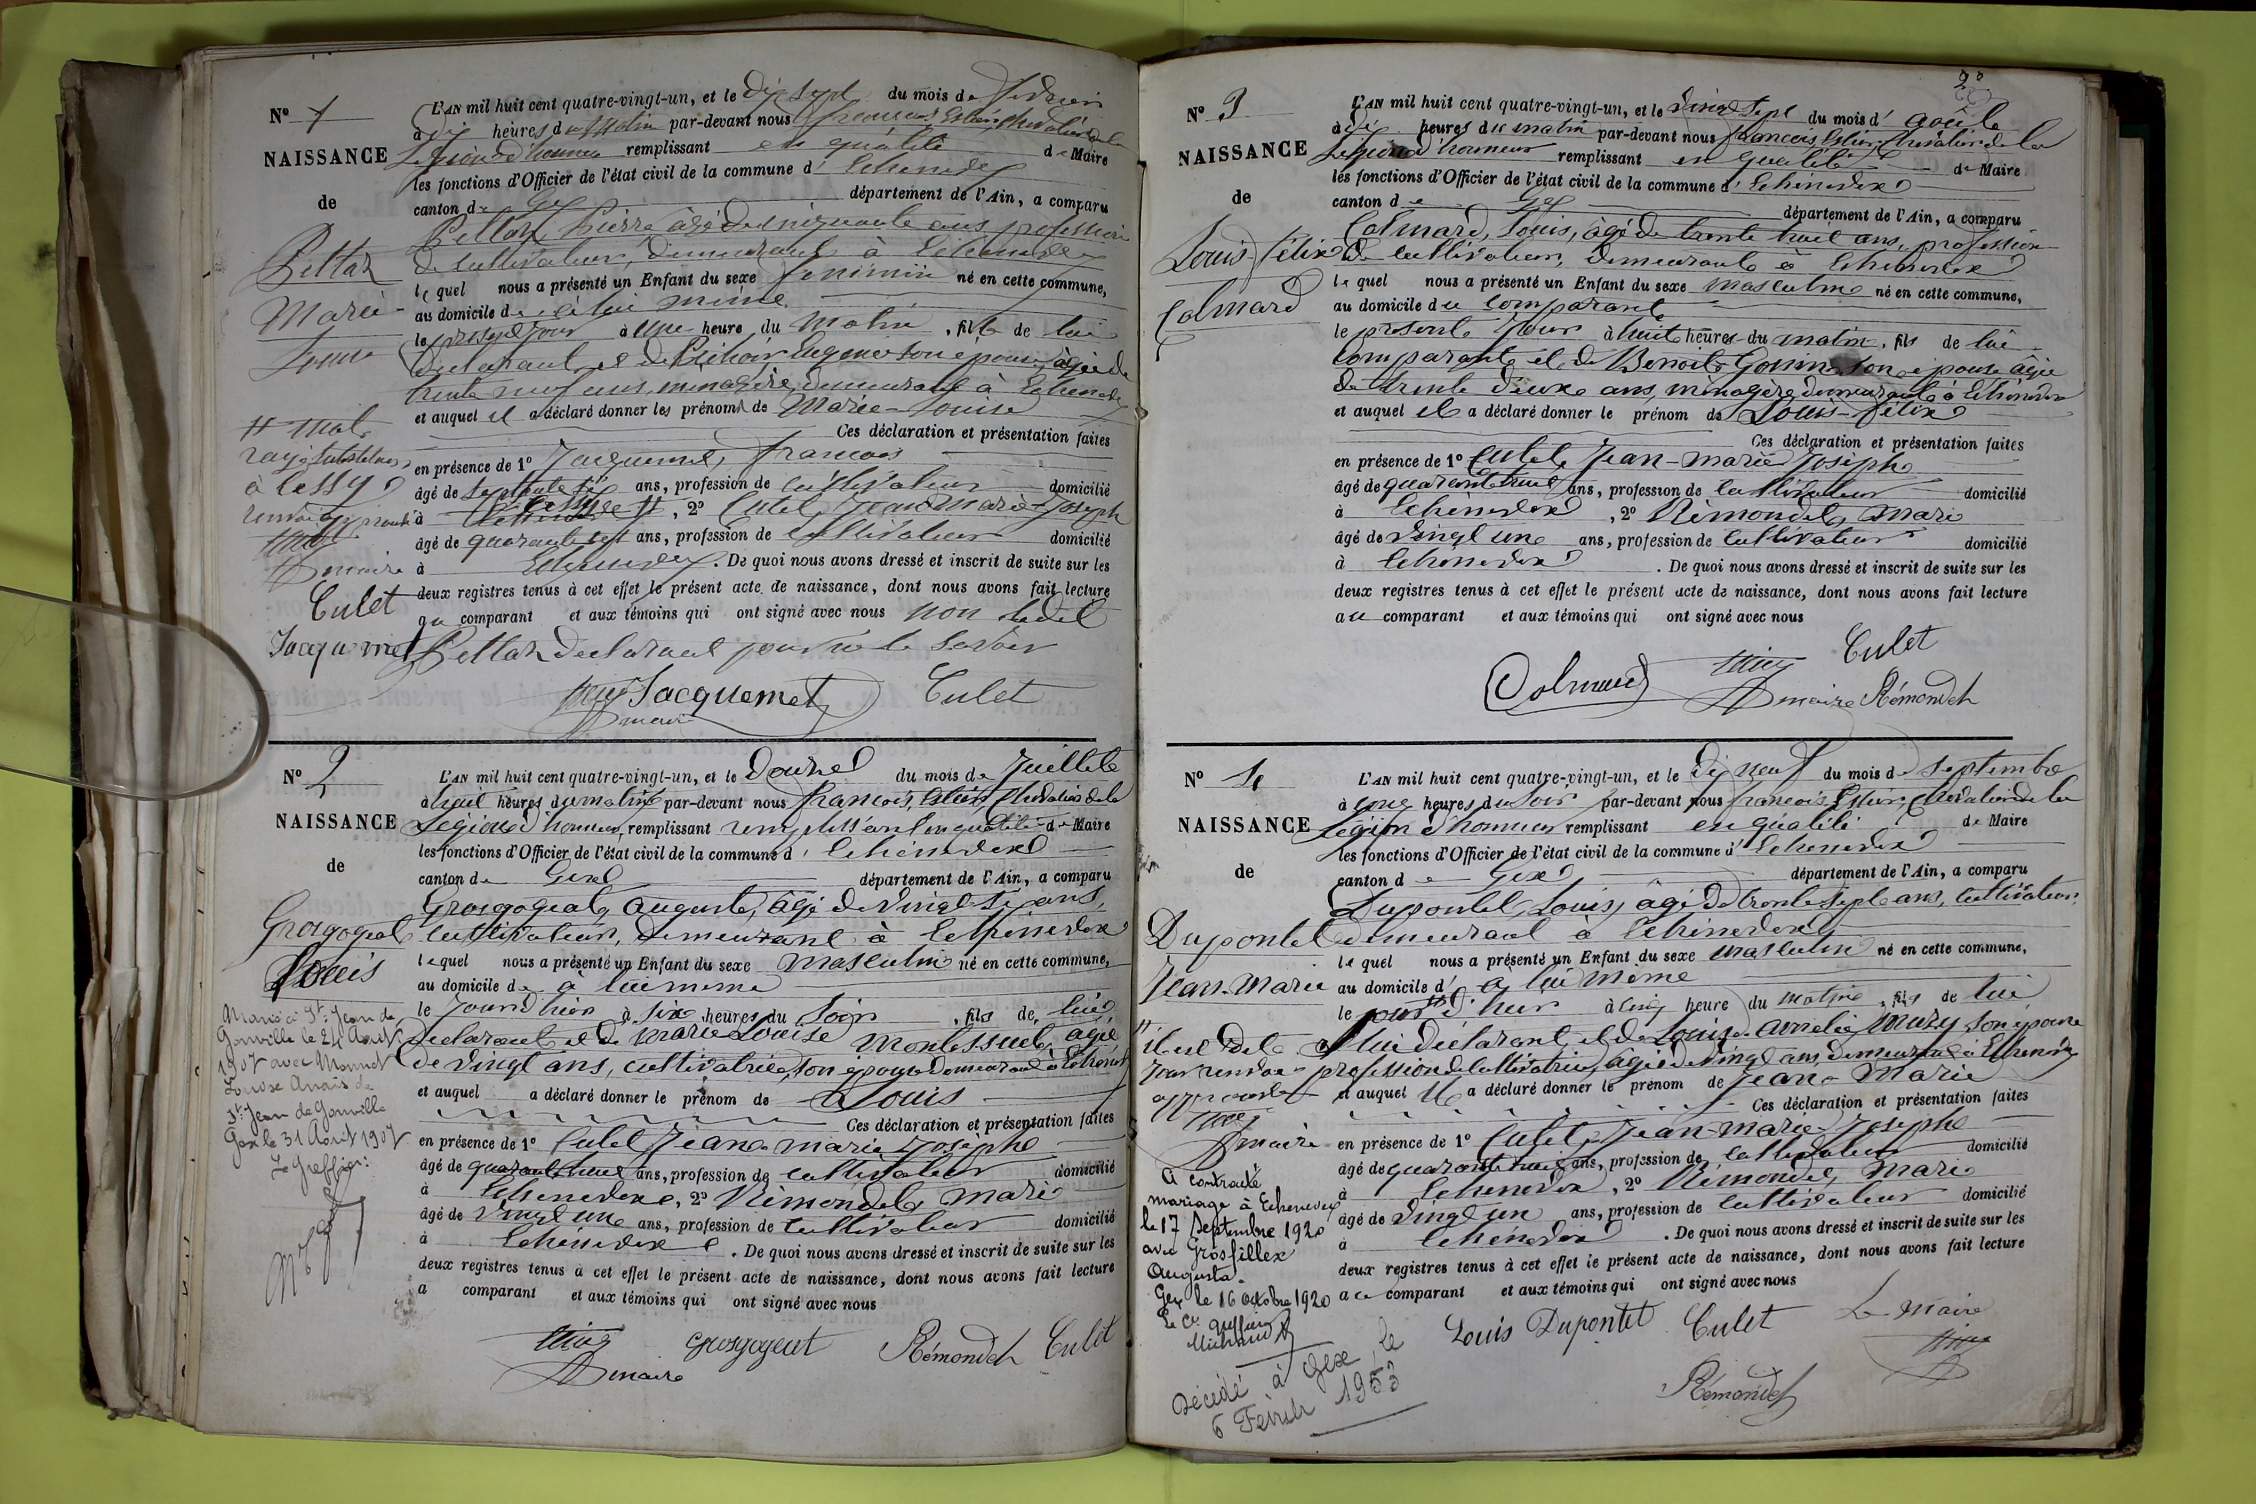 N° 1
NAISSANCE
de
Pellaz
Marie
Louise
L'AN mil huit cent quatre-vingt-un, et le dix sept du mois de Février
à dix heures du matin par-devant nous françois, Chevalier de la
Legion d'honneur remplissant en qualité de Maire
les fonctions d'Officier de l'état civil de la commune d' Echenevex
canton de Gex département de l'Ain, a comparu
Pellaz Pierre âgé de cinquante ans profession
de cultivateur, demeurant à Echenevex
lequel nous a présenté un Enfant du sexe feminin né en cette commune,
au domicile de à lui même
le present jour à une heure du matin, fille de lui
declarant et de Eugenie son épouse, agée de
trente neuf ans, menagère demeurant à Echenevex
et auquel il a déclaré donner les prénoms de Marie-Louise
Ces déclaration et présentation faites
en présence de 1° Jacquemet, francois
âgé de ans, profession de cultivateur domicilié
à Cessy, 2° Culet Jean Marie Joseph
âgé de quarante sept ans, profession de cultivateur domicilié
à Echenevex. De quoi nous avons dressé et inscrit de suite sur les
deux registres tenus à cet effet le présent acte de naissance, dont nous avons fait lecture
au comparant et aux témoins qui ont signé avec nous non ledit
Pellaz declarant pour ne le savoir
# mot
rayé
à Cessy
maire
Culet
Jacquemet
Jacquemet Culet
maire
N° 2
NAISSANCE
de
Grosgogeat
Louis
L'AN mil huit cent quatre-vingt-un, et le douze du mois de Juillet
à huit heures du matin par-devant nous françois, Chevalier de la
Légion d'honneur, remplissant remplissant en qualité de Maire
les fonctions d'Officier de l'état civil de la commune d' Echenevex
canton de Gex département de l'Ain, a comparu
Grosgogeat, Auguste, âgé de vingt six ans,
cultivateur, demeurant à Echenevex
lequel nous a présenté un Enfant du sexe masculin né en cette commune,
au domicile de à lui meme
le jour d'hier à six heures du soir, fils de lui
declarant et de Marie Louise Montessuit, agée
de vingt ans, cultivatrice, son épouse demeurant à Echenevex
et auquel a déclaré donner le prénom de Louis
Ces déclaration et présentation faites
en présence de 1° Culet Jean marie Josephe
âgé de quarante huit ans, profession de cultivateur domicilié
à Echenevex, 2° Rémondet Marie
âgé de vingt une ans, profession de cultivateur domicilié
à Echenevex. De quoi nous avons dressé et inscrit de suite sur les
deux registres tenus à cet effet le présent acte de naissance, dont nous avons fait lecture
a comparant et aux témoins qui ont signé avec nous
Marié à St: Jean de
Gonville le 24 Août
1907 avec Monnet
Louise Anaïs de
St: Jean de Gonville
Gex le 31 Août 1907
Le Greffier:
grosgogeat Rémondet Culet
maire
N° 3
NAISSANCE
de
Louis-Félix
Colmard
L'AN mil huit cent quatre-vingt-un, et le vingt sept du mois d' août
à dix heures du matin par-devant nous françois, Chevalier de la
Legion d'honneur remplissant en qualité de Maire
les fonctions d'Officier de l'état civil de la commune d' Echenevex
canton de Gex département de l'Ain, a comparu
Colmard, Louis, âgé de trente huit ans, profession
de cultivateur, demeurant à Echenevex
lequel nous a présenté un Enfant du sexe masculin né en cette commune,
au domicile du comparant
le présent jour à huit heures du matin, fils de lui
comparant et de Benoite Gonin son épouse âgée
de trente deux ans, ménagère demeurant à Echenevex
et auquel il a déclaré donner le prénom de Louis-Félix
Ces déclaration et présentation faites
en présence de 1° Culet, Jean-marie Josephe
âgé de quarante huit ans, profession de cultivateur domicilié
à Echenevex, 2° Rémondet, Marie
âgé de vingt une ans, profession de cultivateur domicilié
à Echenevex. De quoi nous avons dressé et inscrit de suite sur les
deux registres tenus à cet effet le présent acte de naissance, dont nous avons fait lecture
au comparant et aux témoins qui ont signé avec nous
Colmard Culet
maire Rémondet
N° 4
NAISSANCE
de
Dupontet
Jean-Marie
L'AN mil huit cent quatre-vingt-un, et le dix neuf du mois de septembre
à cinq heures du soir par-devant nous françois, Chevalier de la
Légion d'honneur remplissant en qualité de Maire
les fonctions d'Officier de l'état civil de la commune d' Echenevex
canton de Gex département de l'Ain, a comparu
Dupontet, Louis, âgé de trente sept ans, cultivateur,
demeurant à Echenevex
lequel nous a présenté un Enfant du sexe masculin né en cette commune,
au domicile d' à lui même
le jour d'hier à cinq heure du matin, fils de lui
declarant, et de Louise-Amelie Muzy son épouse
profession de cultivatrice, agée de vingt ans, demeurant à Echenevex
et auquel il a déclaré donner le prénom de Jean-Marie
Ces déclaration et présentation faites
en présence de 1° Culet, Jean-marie Josephe
âgé de quarante huit ans, profession de cultivateur domicilié
à Echenevex, 2° Rémondet, Marie
âgé de vingt un ans, profession de cultivateur domicilié
à Echenevex. De quoi nous avons dressé et inscrit de suite sur les
deux registres tenus à cet effet le présent acte de naissance, dont nous avons fait lecture
au comparant et aux témoins qui ont signé avec nous
maire
A contracté
mariage à Echenevex
le 17 Septembre 1920
avec Grosfillex
Augusta.
Gex le 16 octobre 1920
Le Cis greffier
Décédé à Gex, le
6 Février 1953
Louis Dupontet Culet Le Maire
Rémondet